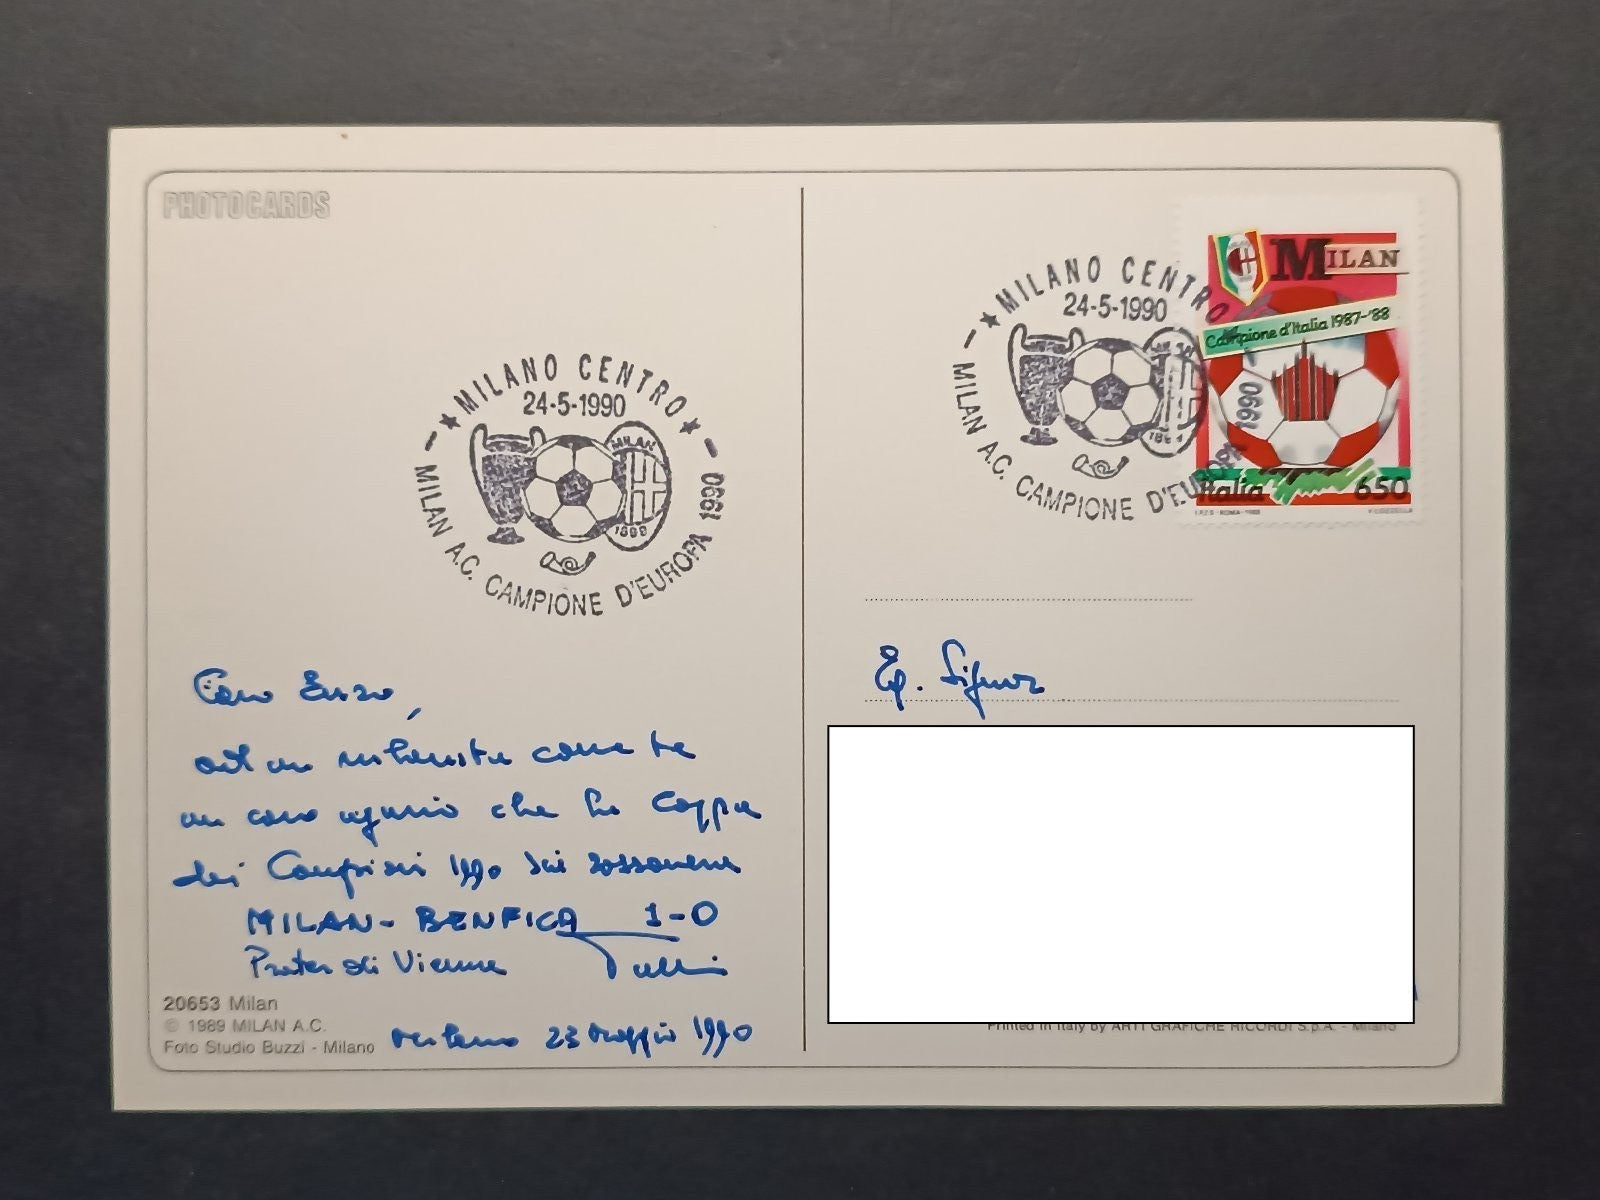 PHOTOCARDS
MILANO CENTRO
24-5-1990
MILAN
1899
MILAN A.C. CAMPIONE D'EUROPA 1990
Caro Enzo,
ad un milanista come te
un caro augurio che la Coppa
dei Campioni 1990 sia rossonera
MILAN - BENFICA 1-0
Prater di Vienna
Milano 23 maggio 1990
20653 Milan
© 1989 MILAN A.C.
Foto Studio Buzzi - Milano
MILANO CENTRO
24-5-1990
MILAN A.C. CAMPIONE D'EUROPA 1990
MILAN
Campione d'Italia 1987-'88
Italia 650
I.P.Z.S. - ROMA - 1988
Eg. Signor
Printed in Italy by ARTI GRAFICHE RICORDI S.p.A. - Milano